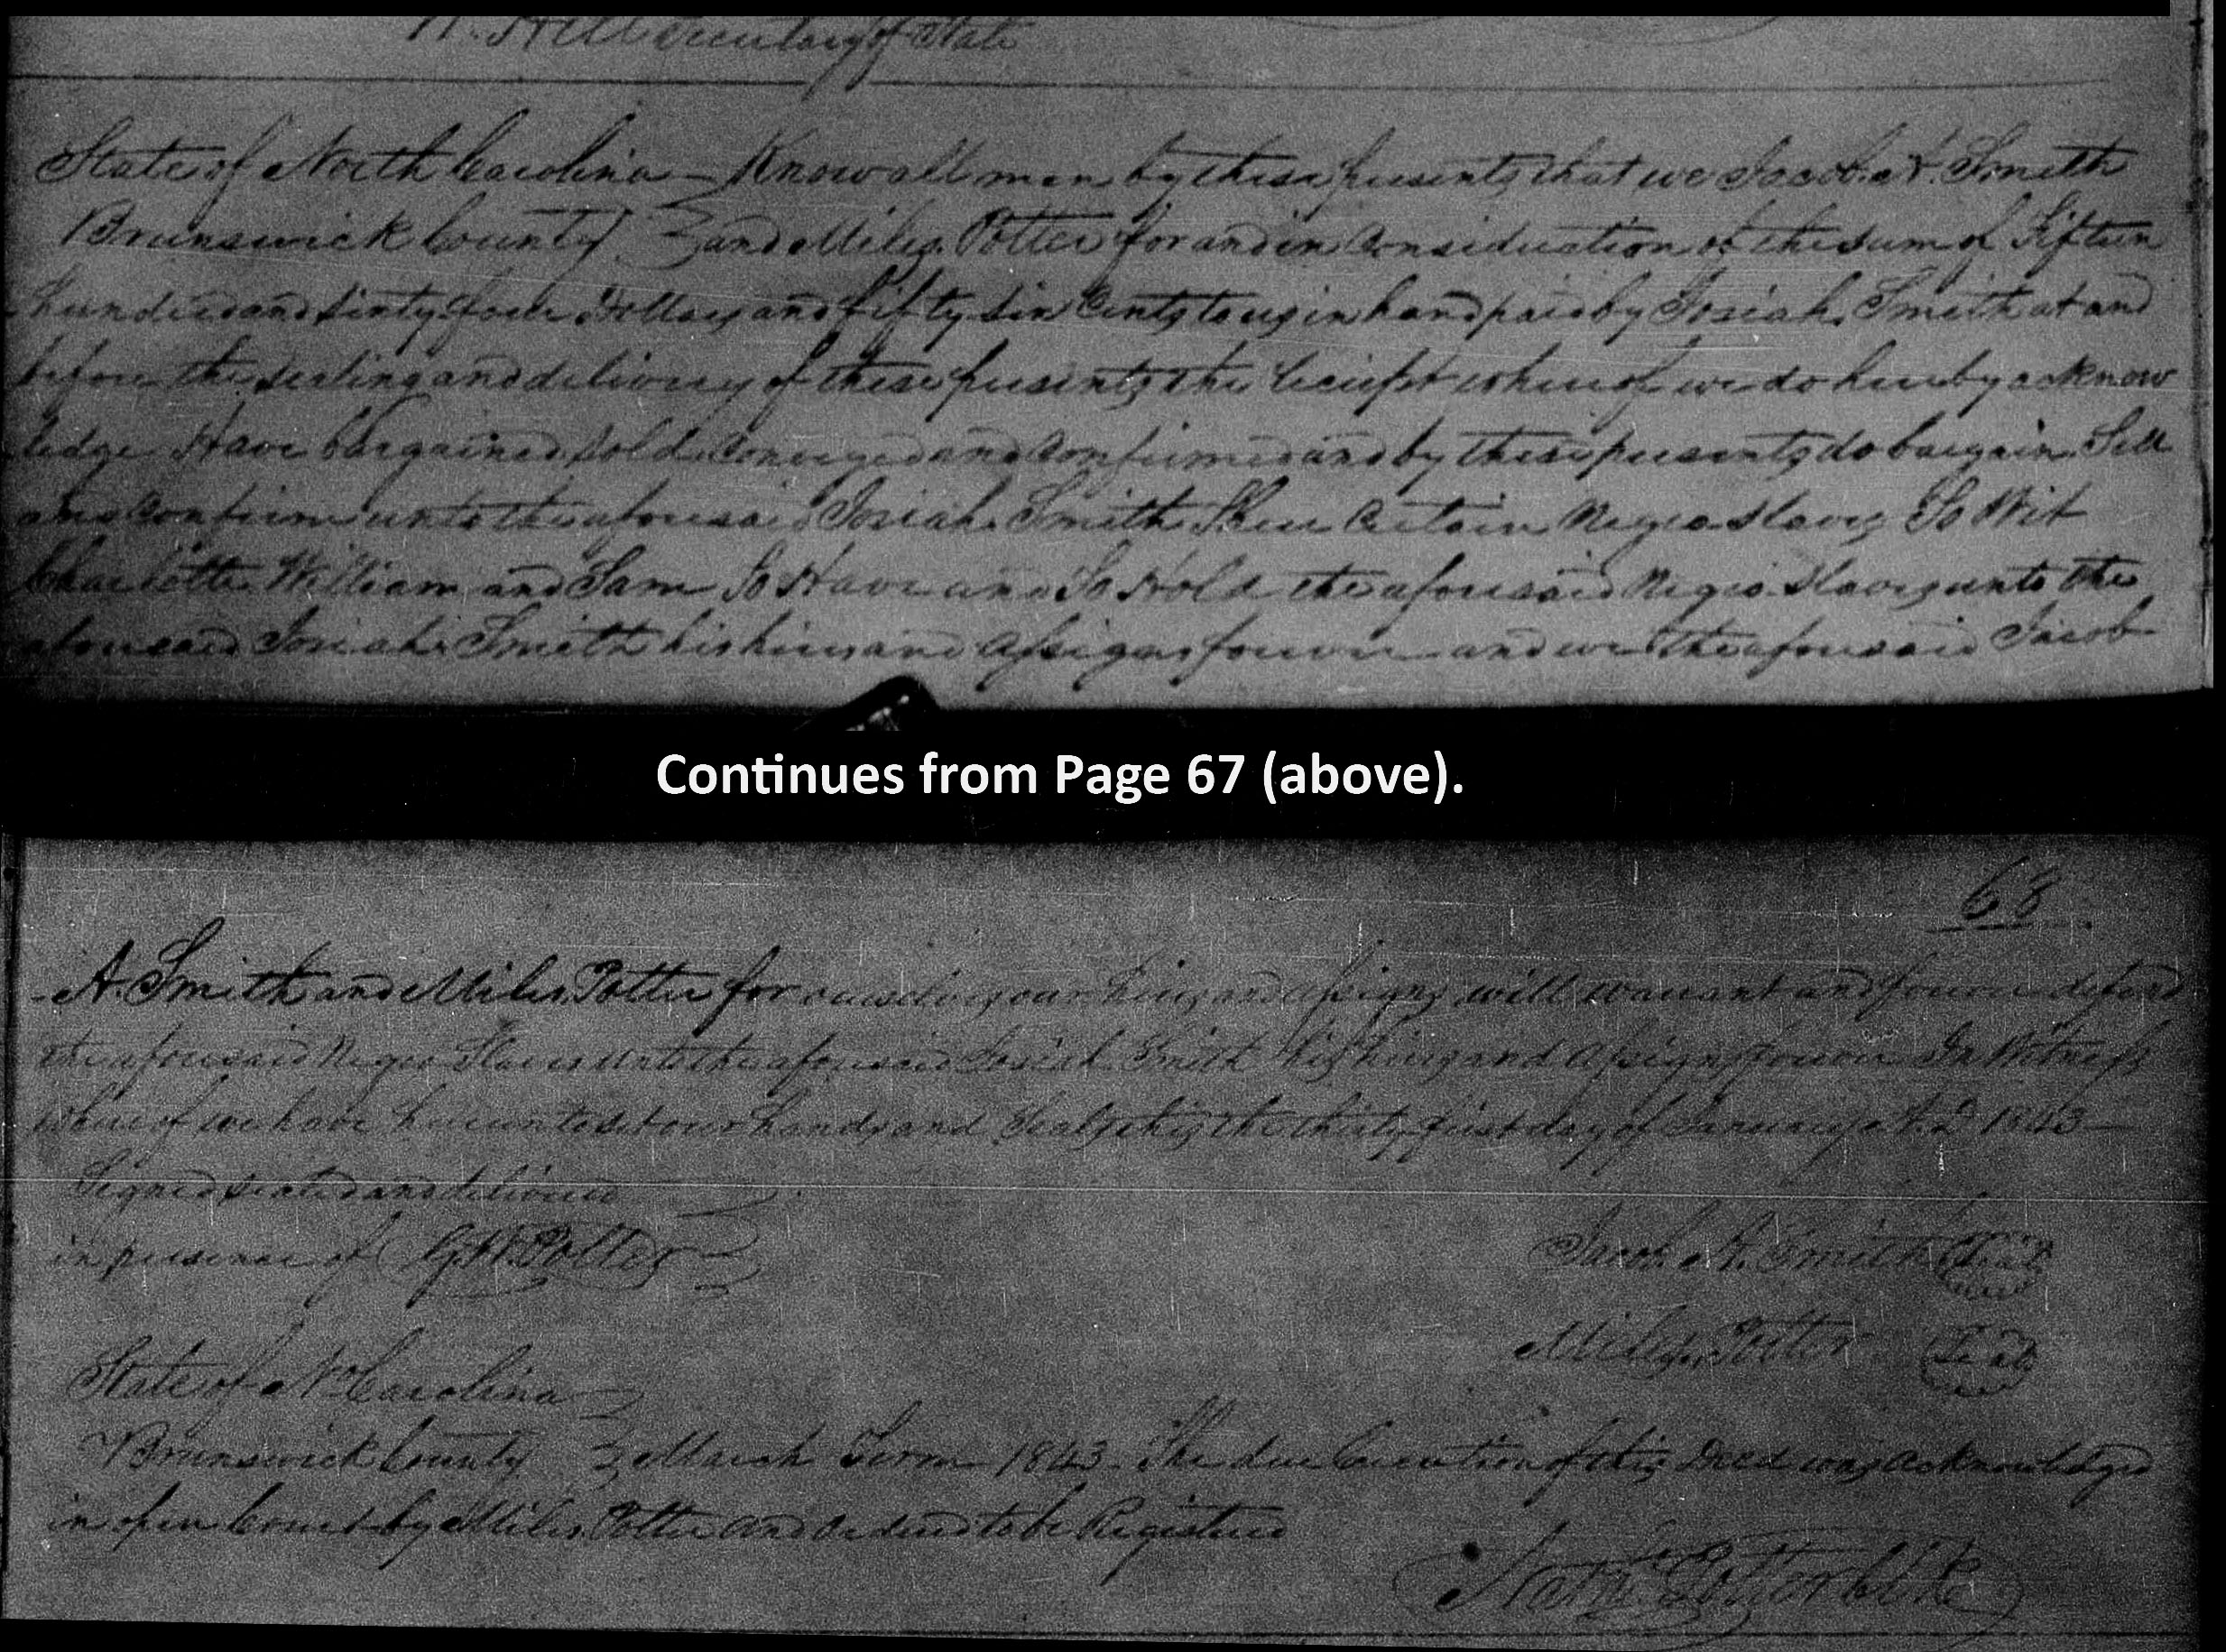 Hill Secretary of State
State of North Carolina - Know all men by these presents that we Jacob A. Smith
Brunswick County } and Miles Potter for and in Consideration of the sum of Fifteen
hundred and sixty four Dollars and fifty six Cents to us in hand paid by Josiah Smith at and
before the sealing and delivery of these presents the Receipt whereof we do hereby acknow
ledge Have bargained sold Conveyed and Confirmed and by these presents do bargain Sell
and Confirm unto the aforesaid Josiah Smith Three Certain Negro Slaves To Wit
Charlotte William and Sam To Have and To Hold the aforesaid Negro Slaves unto the
aforesaid Josiah Smith his heirs and Assigns forever and we the aforesaid Jacob
Continues from Page 67 (above).
68
A. Smith and Miles Potter for ourselves our heirs and Assigns will warrant and forever defend
the aforesaid Negro Slaves unto the aforesaid Josiah Smith his heirs and Assigns forever In Witness
whereof we have hereunto set our hands and Seals this the thirty first day of January A.D. 1843
Signed sealed and delivered
in presence of G.W. Potter
Jacob A. Smith Seal
Miles Potter Seal
State of No Carolina
Brunswick County } March Term 1843. The due Execution of this Deed was acknowledged
in open Court by Miles Potter and ordered to be Registered
Nathl Potter Clk